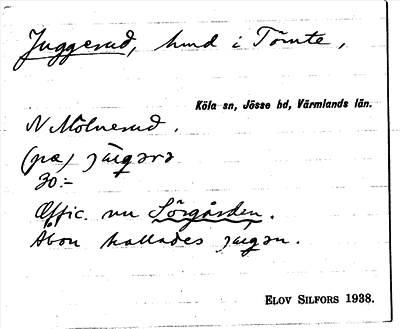 Juggerud, hmd i Tömte,
Köla sn, Jösse hd, Värmlands län.
N Mölnerud.
(pæ) jùgərə
30:-
Offic. nu Sörgården.
Åbon kallades jùgən.
ELOV SILFORS 1938.